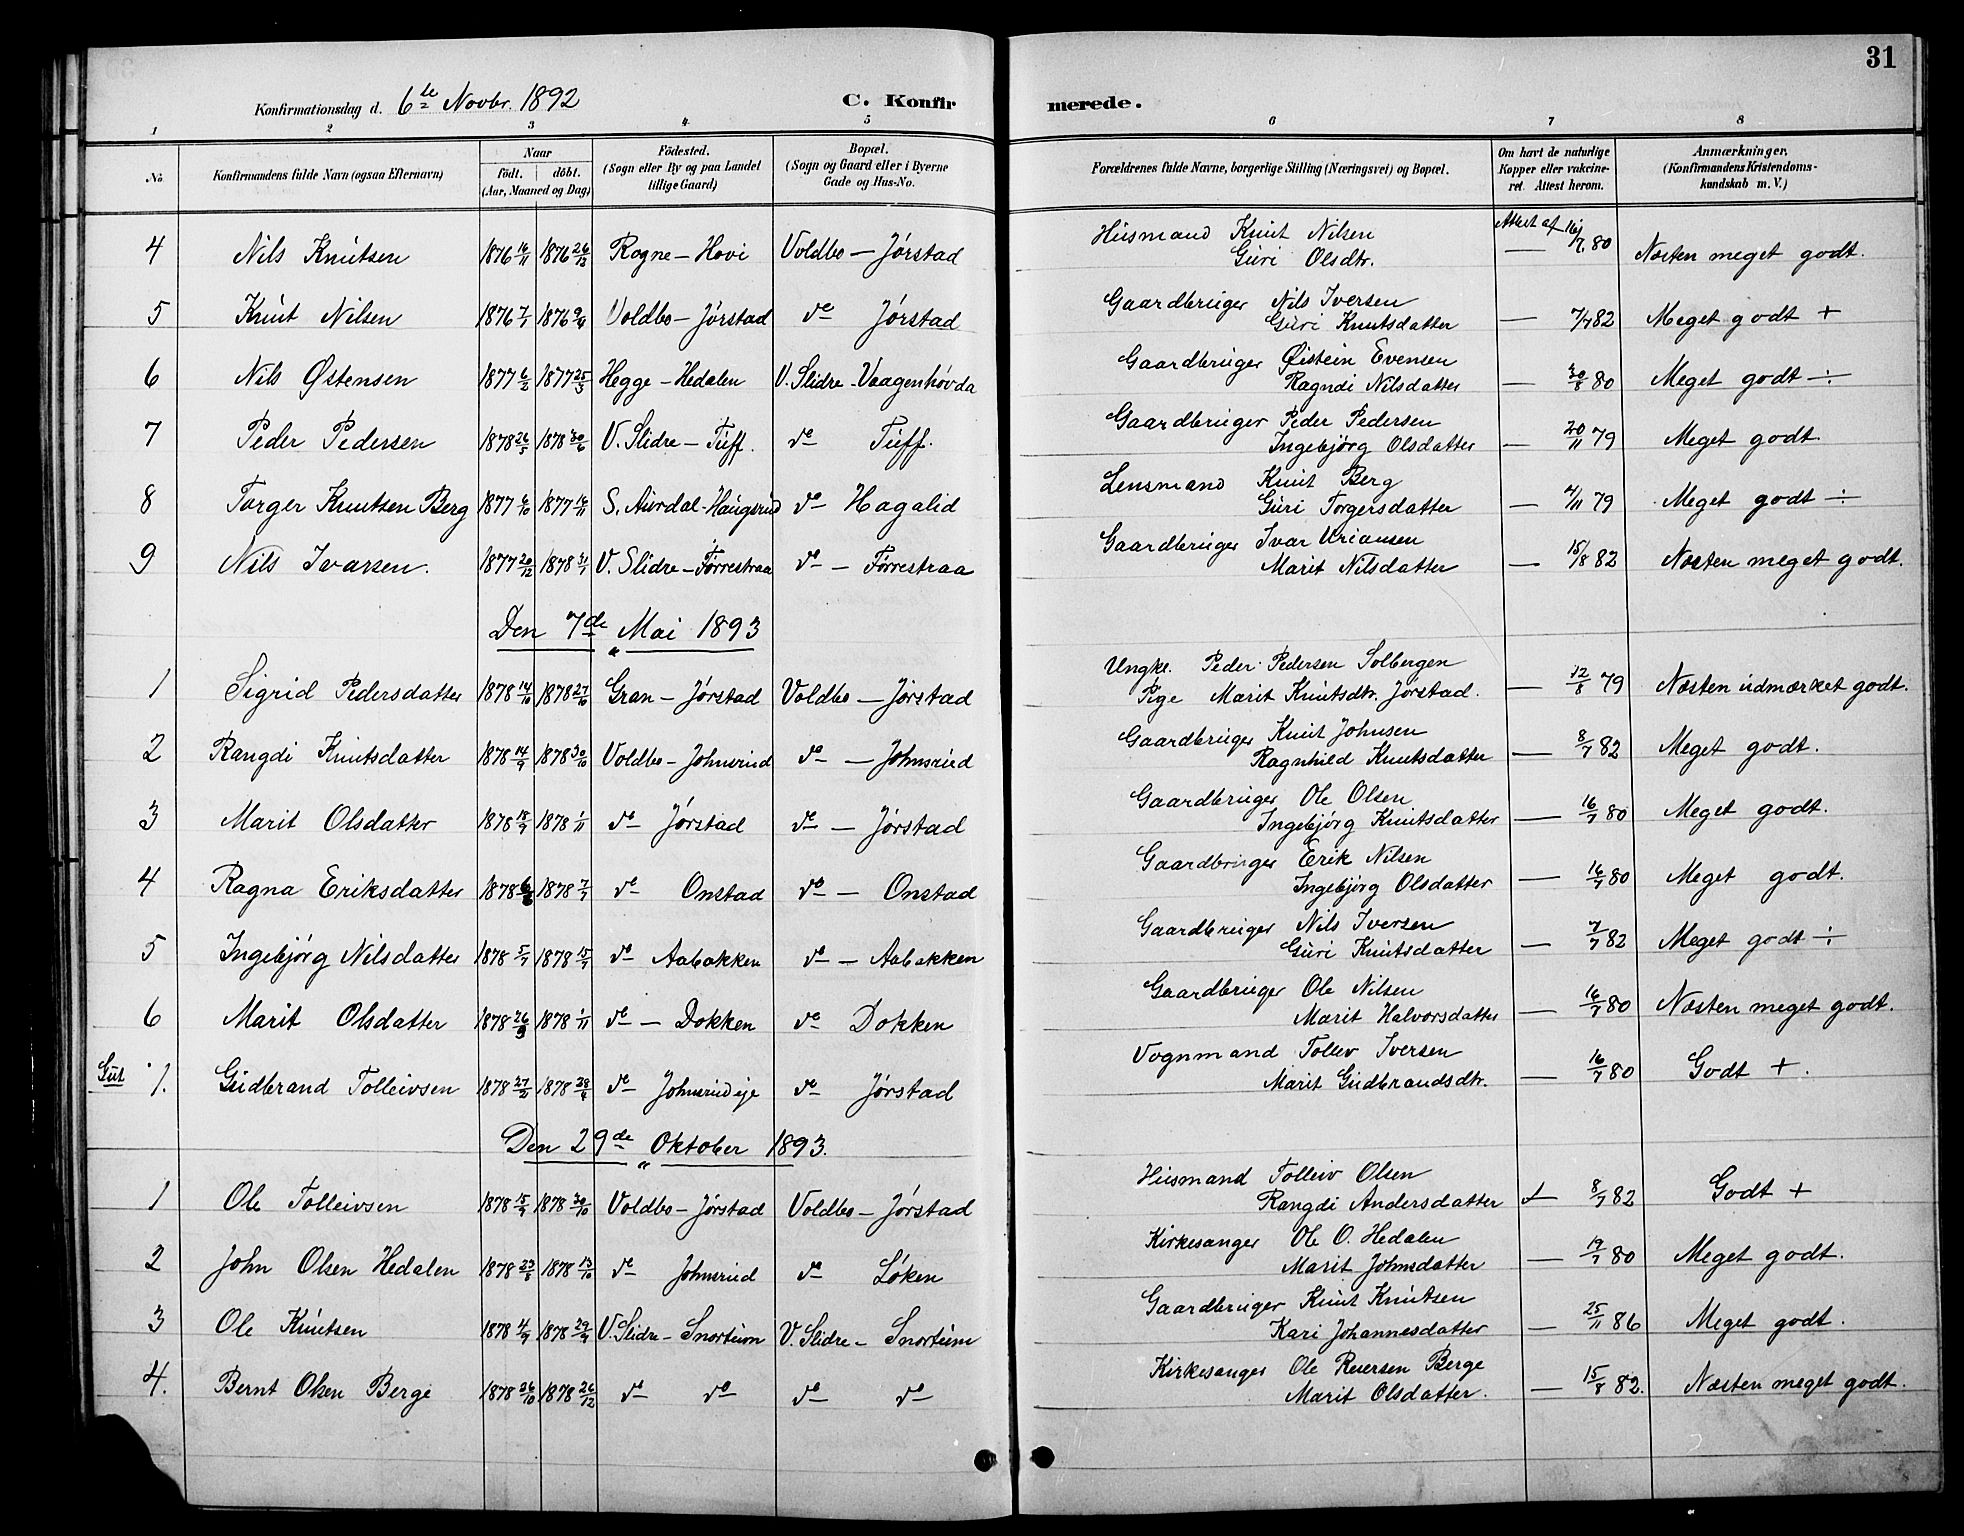 31
Konfirmationsdag d. 6te Novbr. 1892 C. Konfirmerede.
1 2 3 4 5 6 7 8
No. Konfirmandens fulde Navn (ogsaa Efternavn) Naar født. døbt. (Aar, Maaned og Dag) Fødested. (Sogn eller By og paa Landet tillige Gaard) Bopæl. (Sogn og Gaard eller i Byerne Gade og Hus-No. Forældrenes fulde Navne, borgerlige Stilling (Næringsvei) og Bopæl. Om havt de naturlige Kopper eller vakcineret. Attest herom. Anmærkninger, (Konfirmandens Kristendomskundskab m. V.)
4 Nils Knutsen 1876 16/11 1876 26/12 Rogne - Hovi Voldbo - Jørstad Husmand Knut Nilsen Attest af 16/7 80 Næsten meget godt.
Guri Olsdtr.
5 Knut Nilsen 1876 7/1 1876 9/4 Voldbo - Jørstad do Jørstad Gaardbruger Nils Iversen — 7/7 82 Meget godt +
Guri Knutsdatter
6 Nils Østensen 1877 6/2 1877 25/3 Hegge - Hedalen V. Slidre - Vaagenhøvda Gaardbruger Øistein Evensen — 30/8 80 Meget godt ÷
Ragndi Nilsdatter
7 Peder Pedersen 1878 26/5 1878 30/6 V. Slidre - Tuff. do Tuff. Gaardbruger Peder Pedersen — 20/11 79 Meget godt.
Ingebjørg Olsdatter
8 Torger Knutsen Berg 1877 6/10 1877 16/11 S. Aurdal - Haugsrud do Hagalid Lensmand Knut Berg — 4/11 79 Meget godt ÷
Guri Torgersdatter
9 Nils Ivarsen. 1877 20/12 1878 31/1 V. Slidre - Førrestraa do - Førrestraa Gaardbruger Ivar Uriansen — 15/8 82 Næsten meget godt.
Marit Nilsdatter
Den 7de Mai 1893
1 Sigrid Pedersdatter 1878 14/10 1878 27/10 Gran - Jørstad Voldbo - Jørstad Ungk. Peder Pedersen Solbergen — 12/8 79 Næsten udmærket godt.
Pige Marit Knutsdtr. Jørstad.
2 Rangdi Knutsdatter 1878 14/9 1878 30/10 Voldbo - Johnsrud do - Johnsrud Gaardbruger Knut Johnsen — 8/7 82 Meget godt.
Ragnhild Knutsdatter
3 Marit Olsdatter 1878 18/9 1878 1/11 do Jørstad do - Jørstad Gaardbruger Ole Olsen — 16/7 80 Meget godt.
Ingebjørg Knutsdatter
4 Ragna Eriksdatter 1878 1878 7/7 do Onstad do - Onstad Gaardbruger Erik Nilsen — 16/7 80 Meget godt.
Ingebjørg Olsdatter
5 Ingebjørg Nilsdatter 1878 5/7 1878 15/7 do Aabakken do - Aabakken Gaardbruger Nils Iversen — 7/7 82 Meget godt ÷
Guri Knutsdatter
6 Marit Olsdatter 1878 26/9 1878 1/11 do - Dokken do Dokken Gaardbruger Ole Nilsen — 16/7 80 Næsten meget godt.
Marit Halvorsdatter
Gut 1. Gudbrand Tolleivsen 1878 27/2 1878 28/4 do Johnsrudeje do Jørstad Vognmand Tollev Iversen — 16/7 80 Godt +.
Marit Gudbrandsdtr.
Den 29de Oktober 1893.
1 Ole Tolleivsen 1878 15/9 1878 30/10 Voldbo - Jørstad Voldbo - Jørstad Husmand Tolleiv Olsen — 8/7 82 Godt +
Rangdi Andersdatter
2 John Olsen Hedalen 1878 23/8 1878 13/10 do Johnsrud do Løken Kirkesanger Ole O. Hedalen — 19/7 80 Meget godt.
Marit Johnsdatter
3 Ole Knutsen 1878 4/9 1878 29/9 V. Slidre - Snortum V. Slidre - Snortum Gaardbruger Knut Knutsen — 25/11 86 Meget godt.
Kari Johannesdatter
4. Bernt Olsen Berge 1878 26/10 1878 26/12 do do do do Kirkesanger Ole Reiersen Berge — 15/8 82. Næsten meget godt.
Marit Olsdatter.